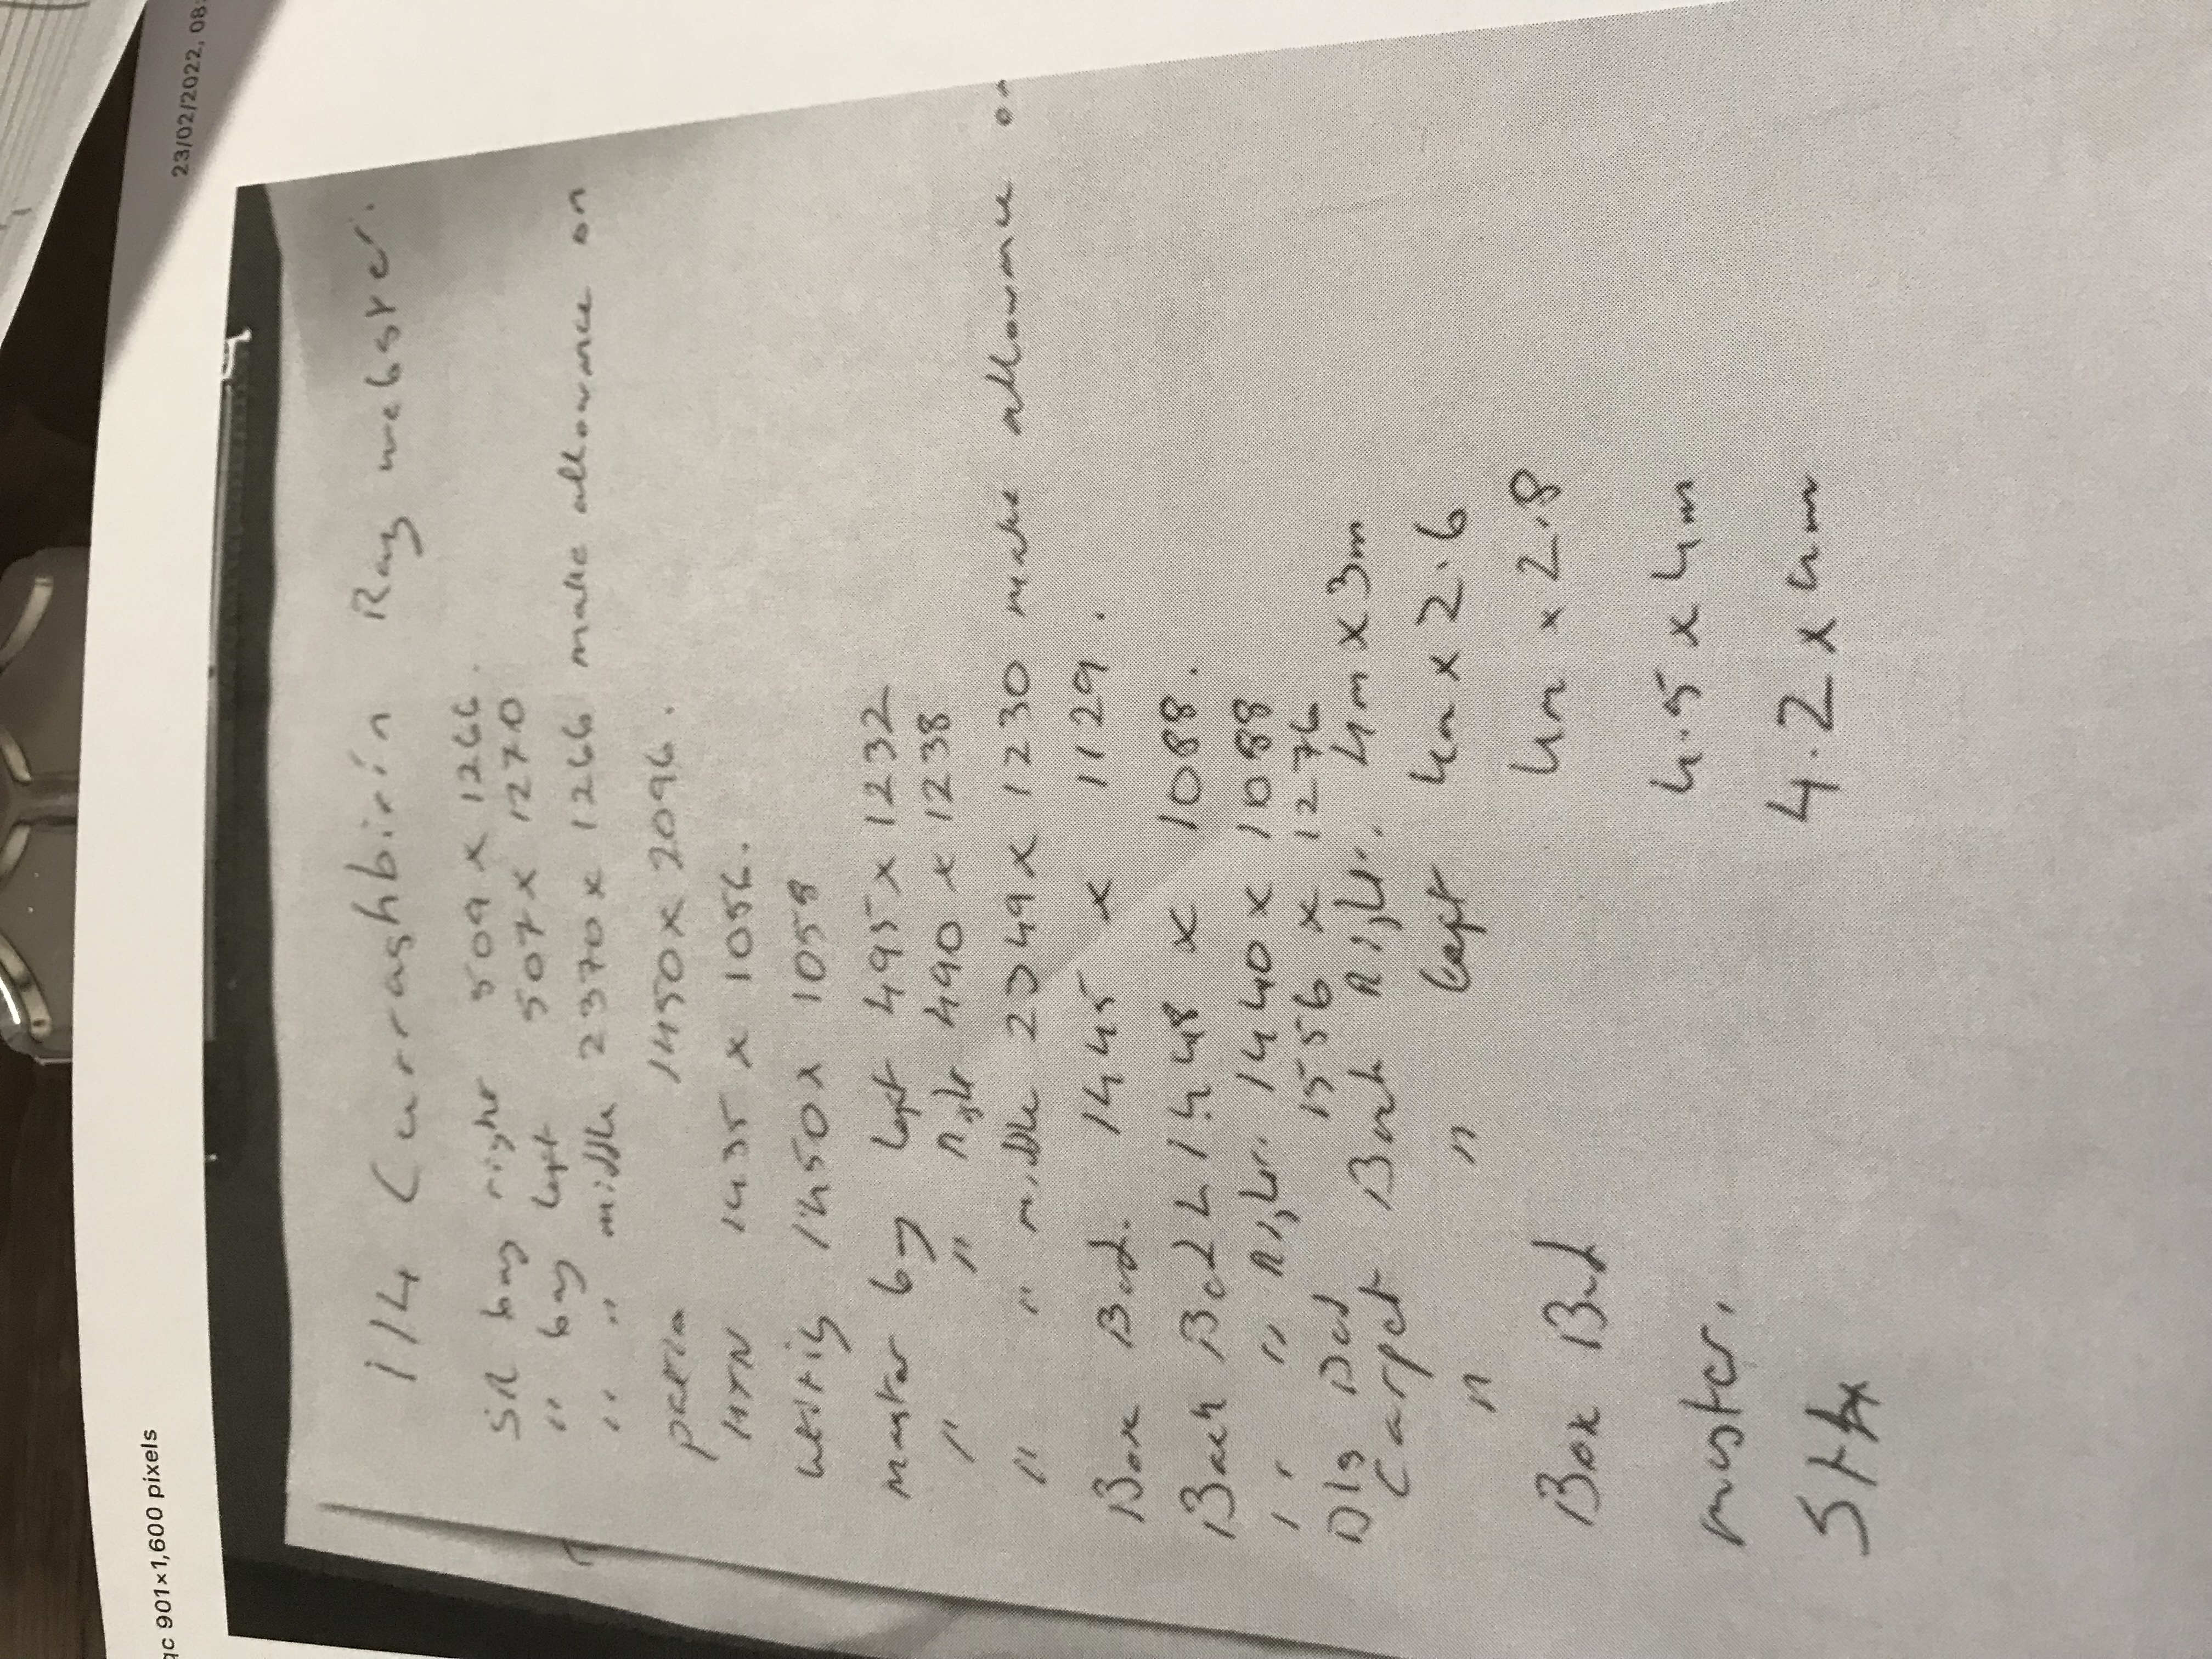 23/02/2022, 08:
qc 901×1,600 pixels
114 Curraghbirin Ray webster.
SR bay right 509 x 1266.
" bay left 507 x 1270
" " middle 2370 x 1266 make allowance on
patio 1450 x 2096.
KTN 1435 x 1056.
utility 1450 x 1058
master by left 495 x 1232
" " right 490 x 1238
" " middle 2349 x 1230 make allowance on
Box Bed. 1445 x 1129.
Back Bed L 1448 x 1088.
" " Right. 1440 x 1088
D/s Bed 1556 x 1276
Carpet Back Right. 4m x 3m
" " left 4m x 2.6
Box Bed 4m x 2.8
master. 4.5 x 4m
4.2 x 4m